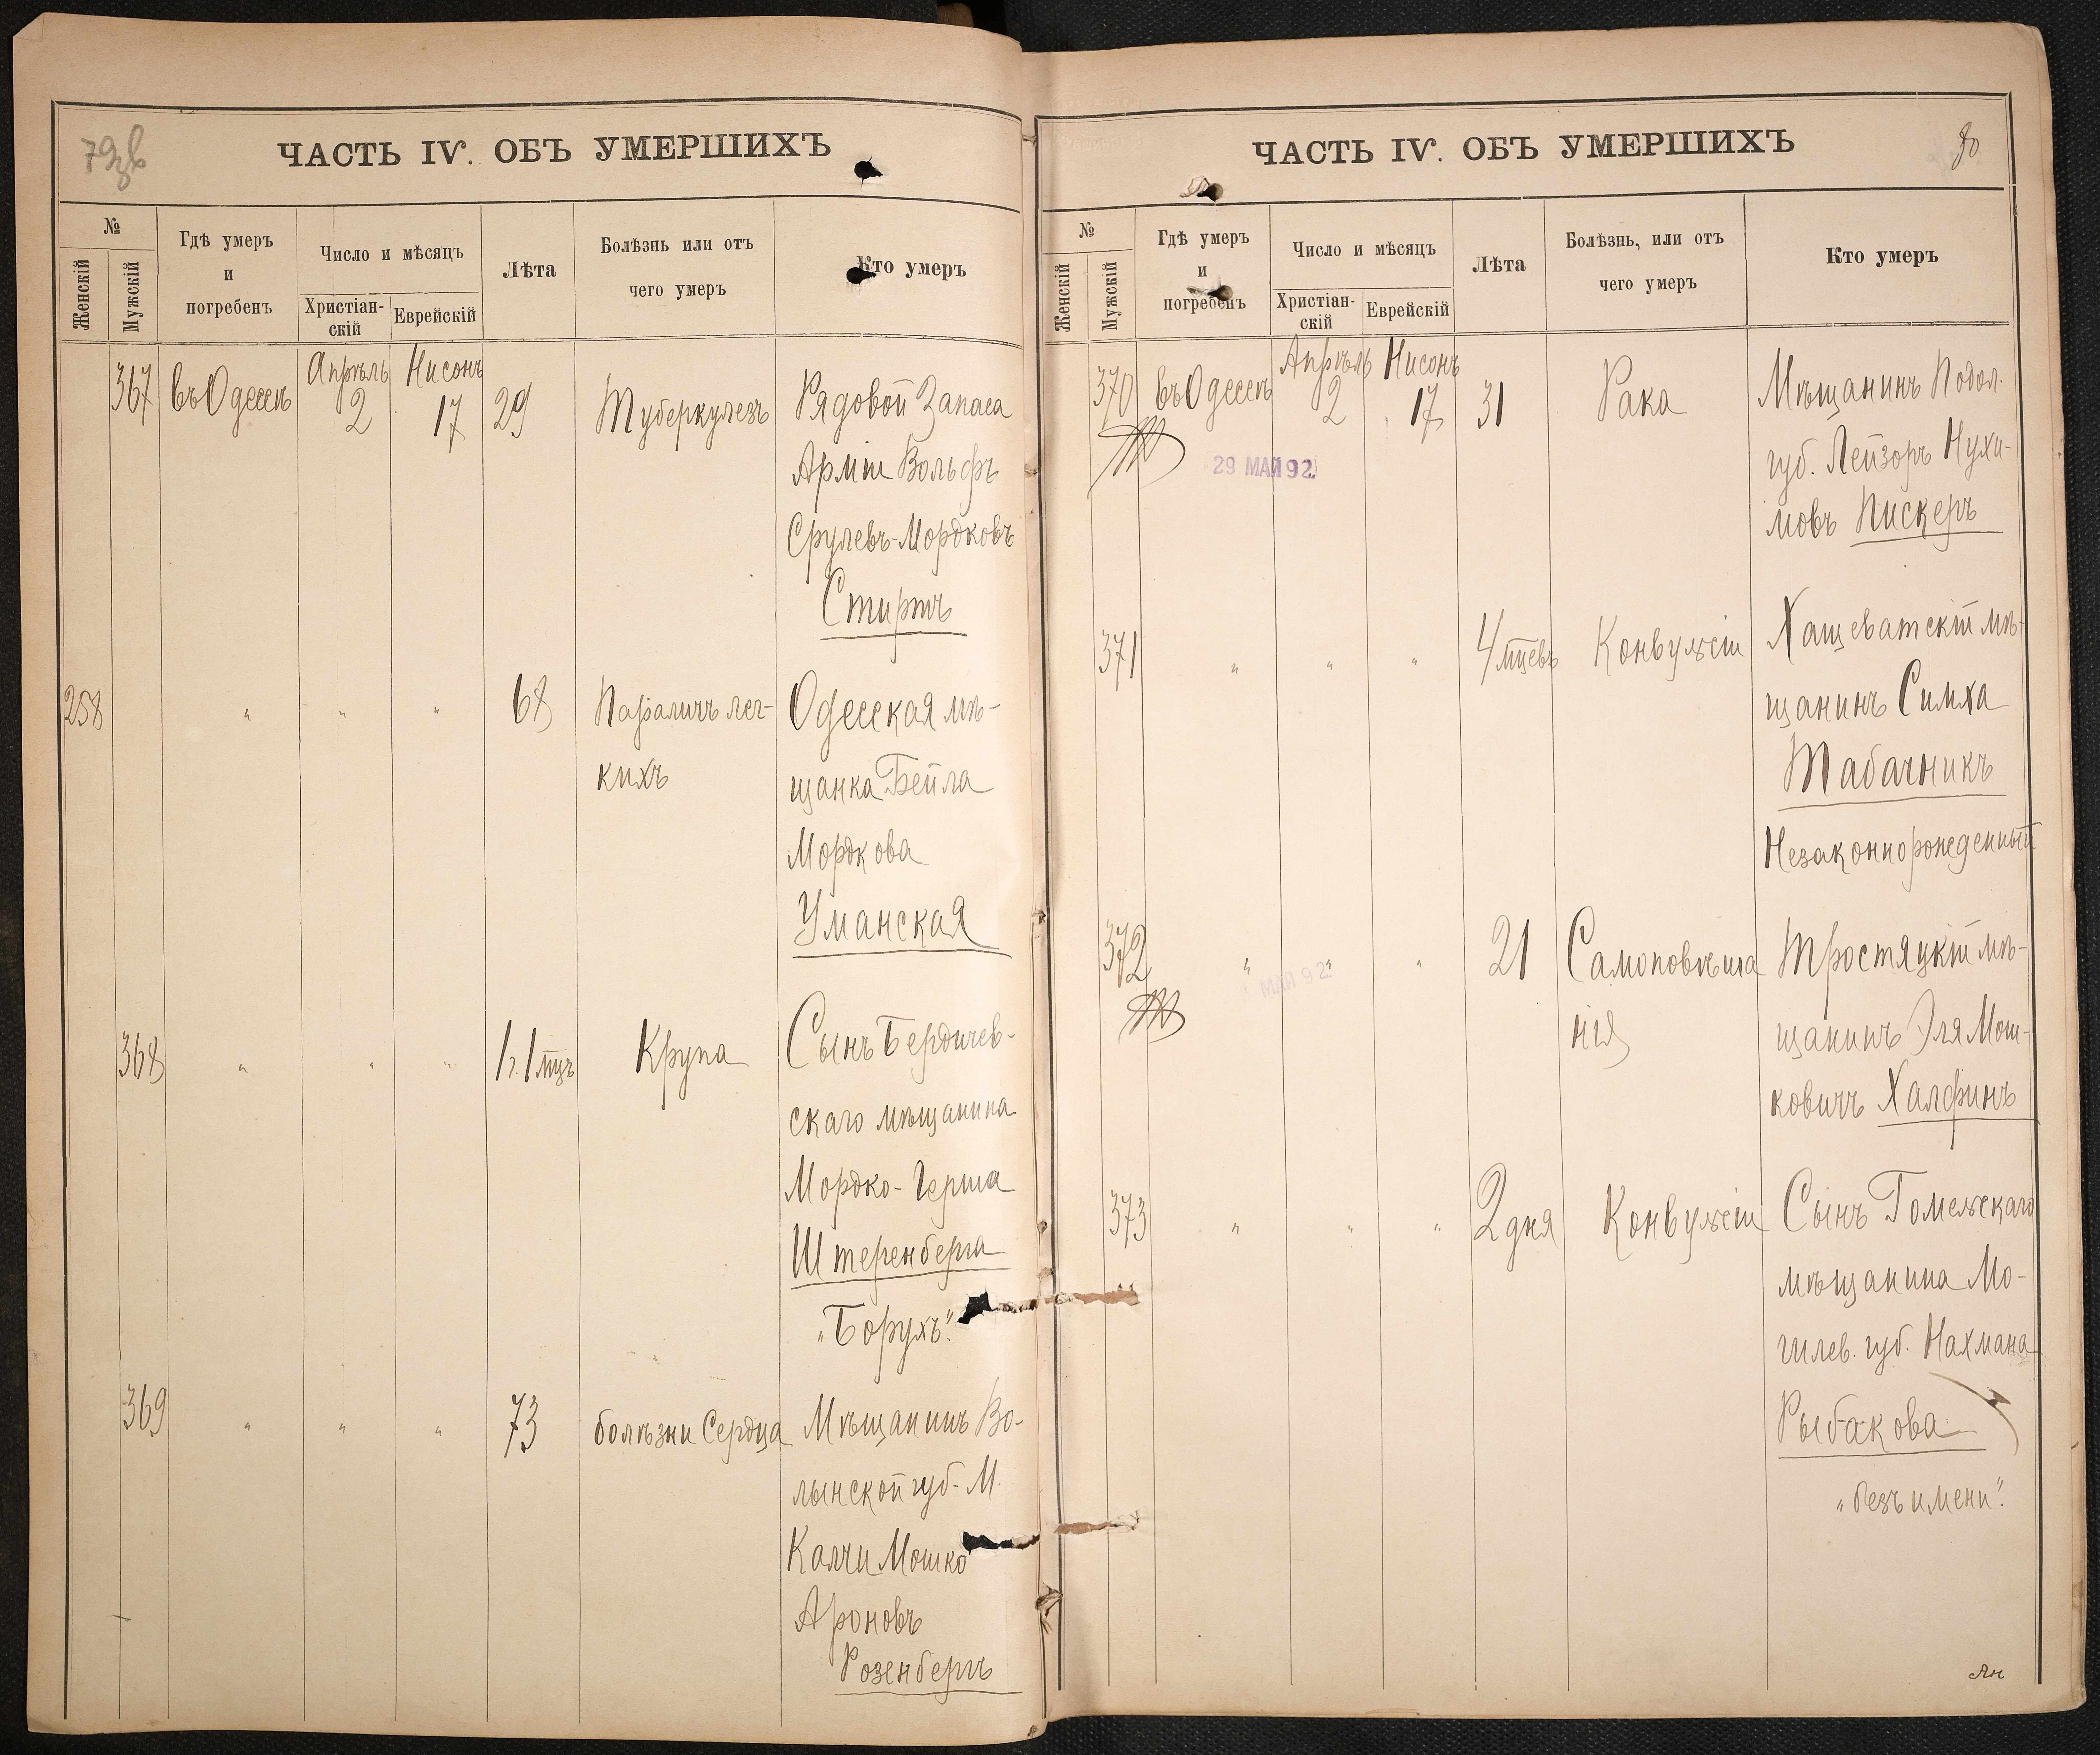 79 об
ЧАСТЬ IV. ОБЪ УМЕРШИХЪ
№
Женскій
Мужскій
Гдѣ умеръ
и
погребенъ
Число и мѣсяцъ
Христіан-
скій
Еврейскій
Лѣта
Болѣзнь или отъ
чего умеръ
Кто умеръ
367 въ Одессѣ Апрѣль 2 Нисонъ 17 29 Туберкулезъ Рядовой Запаса
Арміи Вольфъ
Срулевъ-Мордковъ
Стиртъ
258 " " " 68 Параличъ лег- Одесская мѣ-
кихъ щанка Бейла
Мордкова
Уманская
368 " " " 1 г. 1 мцъ Крупа Сынъ Бердичев-
скаго мѣщанина
Мордко-Герша
Штеренберга
"Борухъ".
369 " " " 73 болѣзни Сердца Мѣщанинъ Во-
лынской губ. М.
Колчи Мошко
Ароновъ
Розенбергъ
ЧАСТЬ IV. ОБЪ УМЕРШИХЪ
80
№
Женскій
Мужскій
Гдѣ умеръ
и
погребенъ
Число и мѣсяцъ
Христіан-
скій
Еврейскій
Лѣта
Болѣзнь, или отъ
чего умеръ
Кто умеръ
370 въ Одессѣ Апрѣль 2 Нисонъ 17 31 Рака Мѣщанинъ Подол.
29 МАЙ 92.
губ. Лейзоръ Нухи-
мовъ Пискеръ
371 " " " 4 мцевъ Конвульсіи Хащеватскій мѣ-
щанинъ Симха
Табачникъ
Незаконнорожденный
372 " " " 21 Самоповѣшa Тростяцкій мѣ-
МАЙ 92.
нія щанинъ Эля Мош-
ковичъ Халфинъ
373 " " " 2 дня Конвульсіи Сынъ Гомельскаго
мѣщанина Мо-
гилев. губ. Нахмана
Рыбакова
"безъ имени".